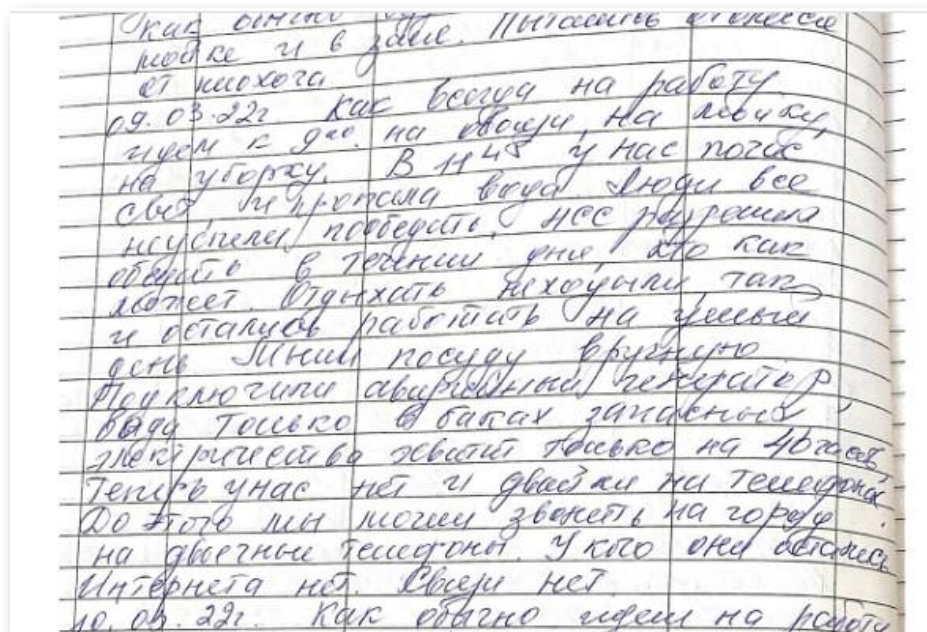 как обычно
мойке и в зале. Пытаемся отвлечся
от плохога
09.03.22г как всегда на работу.
идем к 9⁰⁰. на овощи, на мойку,
на уборку. В 11⁴⁵ у нас погас
свет, и пропала вода Люди все
неуспели пообедать, нсс разрешил
обедать в течении дня, кто как
может. Отдыхать неходили, так
и остались работать на целый
день Мыли посуду вручную
Подключили аварийный генератор,
вода только в баках запасных
электричества хватит только на 40 часов
Теперь унас нет и двойки на телефонах.
До этого мы могли звонеть на город
на двоечные телефоны. У кого они остались
Интернета нет. Связи нет
10.03.22г. Как обычно идем на работу